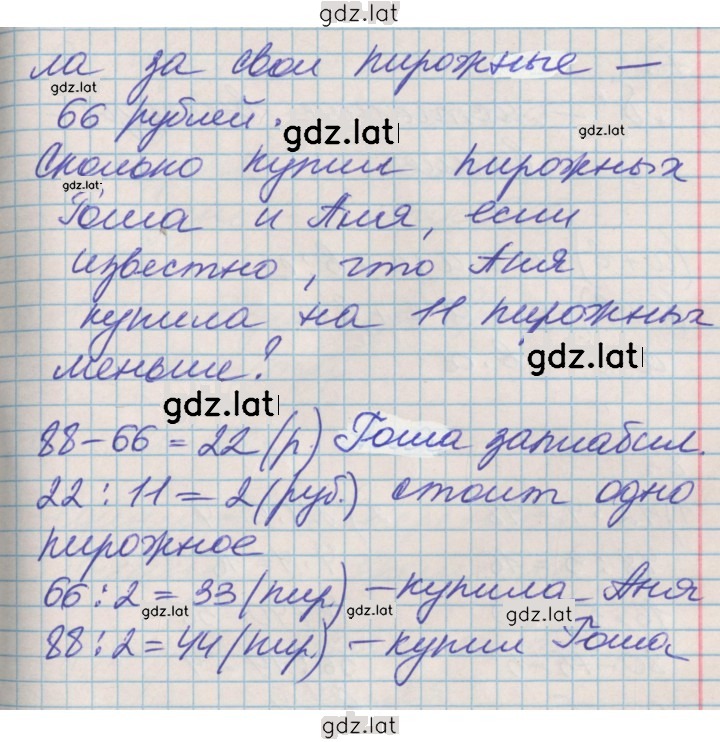 gdz.lat
ла за свои пирожные —
gdz.lat
66 рублей.
gdz.lat
gdz.lat
Сколько купили пирожных
gdz.lat
Гоша и Аня, если
известно, что Аня
купила на 11 пирожных
меньше?
gdz.lat
gdz.lat
88-66=22(р.) Гоша заплабил.
22:11=2(руб.) стоит одно
пирожное
66:2=33(пир.) -купила Аня
gdz.lat
gdz.lat
gdz.lat
88:2=44(пир.) -купил Гоша
gdz.lat